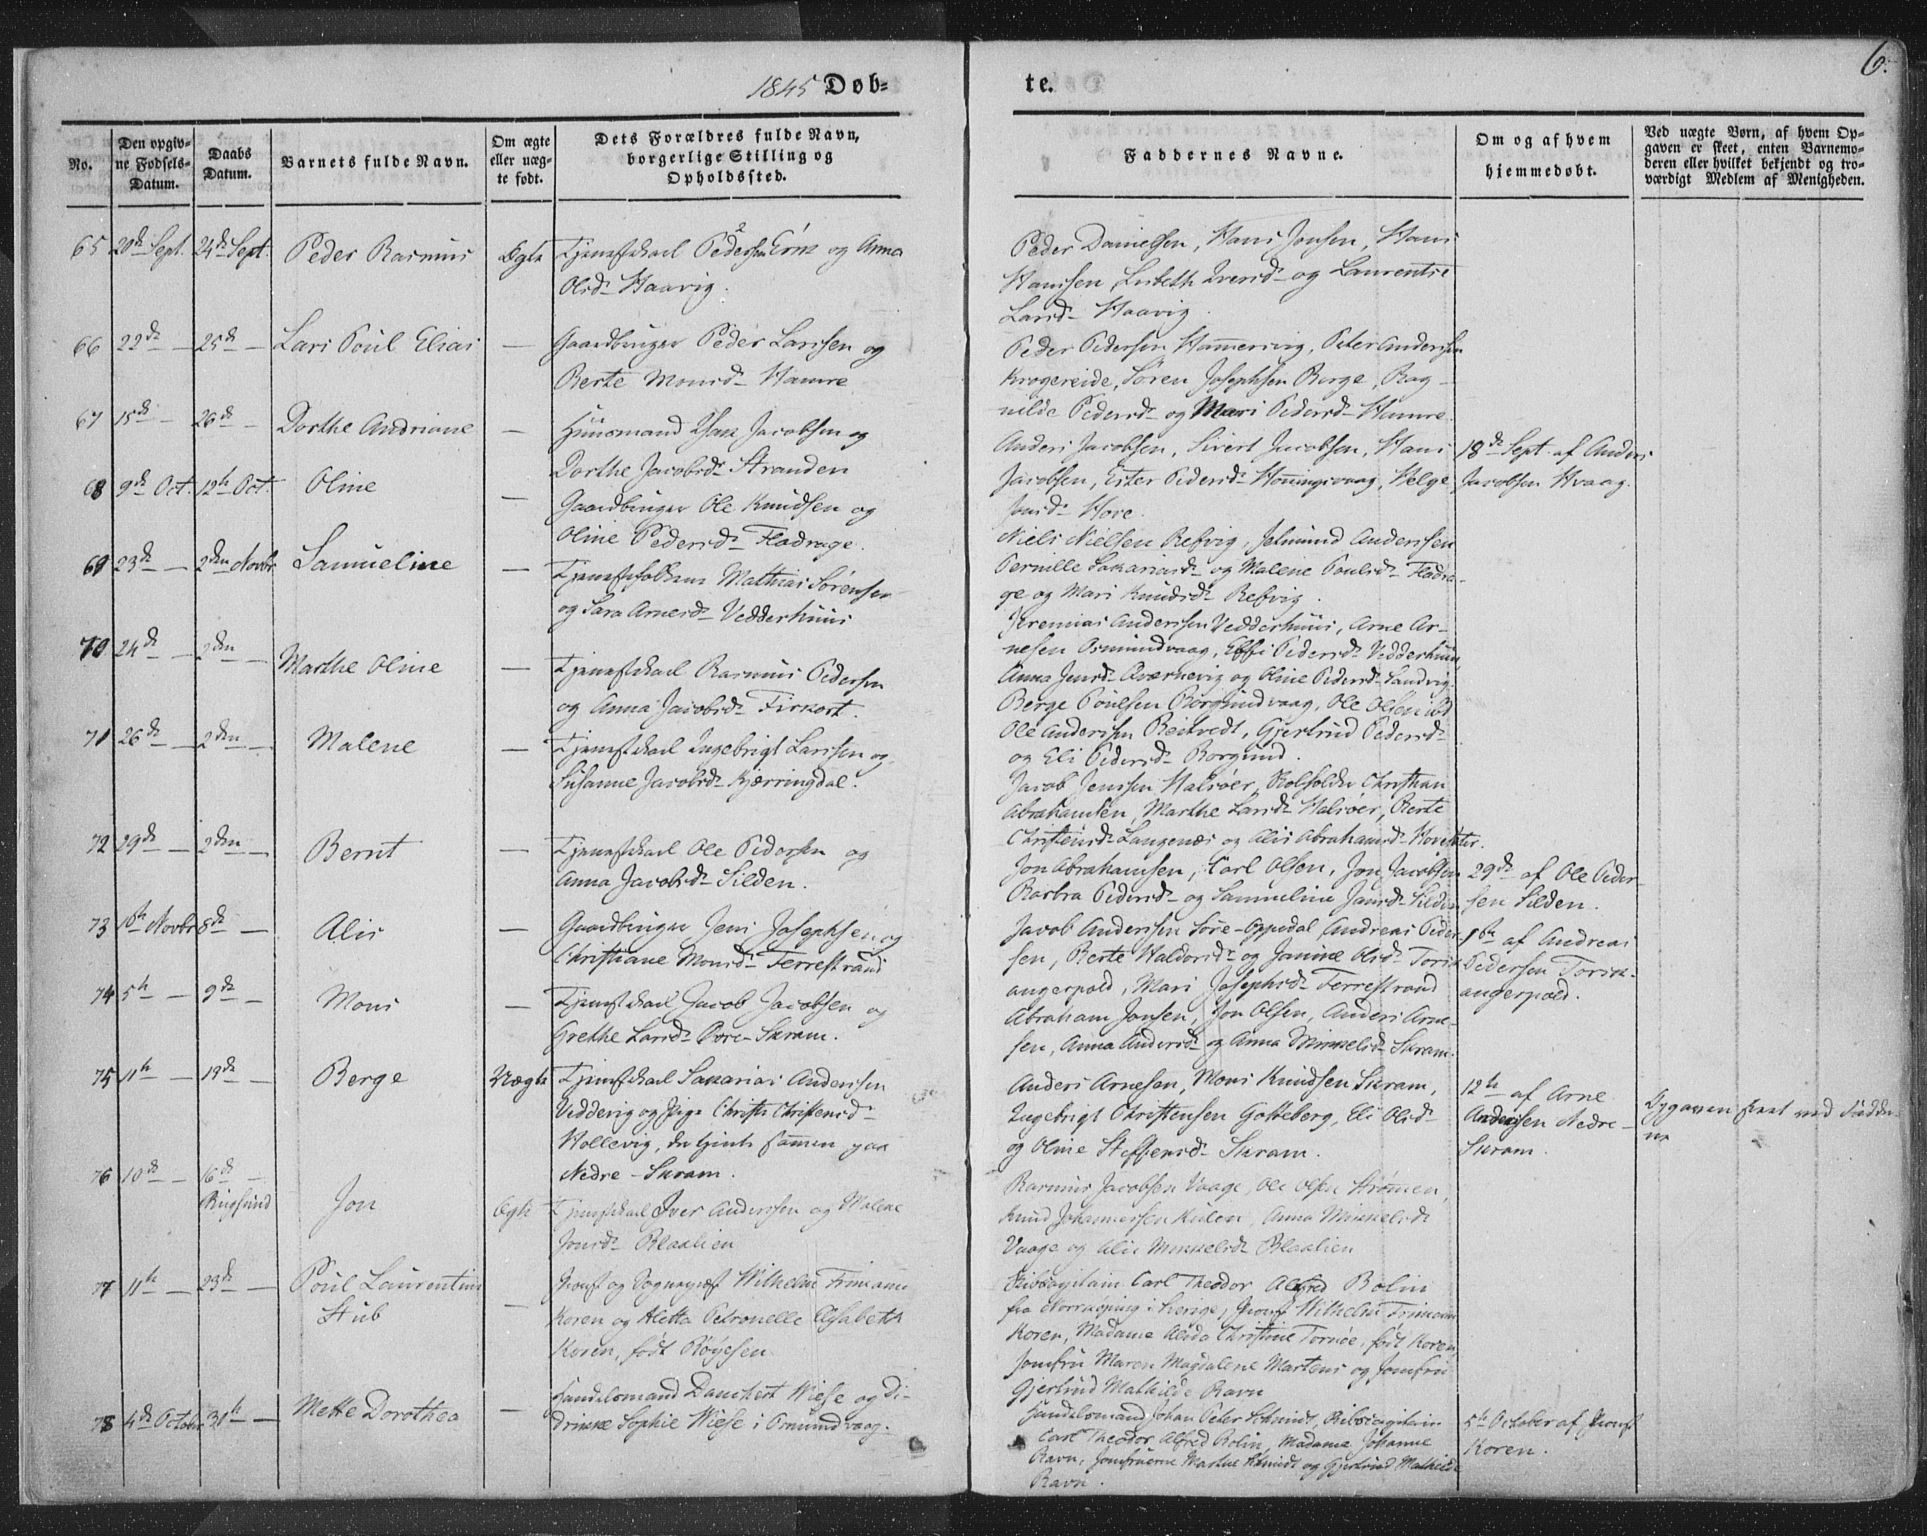 6.
1845 Døb-
te.
No.
Den opgiv-
ne Fødsels-
Datum.
Daabs
Datum.
Barnets fulde Navn.
Om ægte
eller uæg-
te født.
Dets Forældres fulde Navn,
borgerlige Stilling og
Opholdssted.
Faddernes Navne.
Om og af hvem
hjemmedøbt.
Ved uægte Børn, af hvem Op-
gaven er skeet, enten Barnemo-
deren eller hvilket bekjendt og tro-
værdigt Medlem af Menigheden.
65 20de Sept. 24de Sept. Peder Rasmus Ægte Tjenestekarl Pedersen og Anna
Olsd. Haavig.
Peder Danielsen, Hans Jensen, Hans
Hanssen, Lisbeth Iversd. og Laurentse
Larsd. Haavig.
66 22de — 25de — Lars Poul Elias — Gaardbruger Peder Larssen og
Berte Monsd. Hamre
Peder Pedersen Hamersvig, Peter Anderssen
Krogereide, Søren Josephsen Berge, Rag-
nilde Pedersd. og Mari Pedersd. Hamre.
67 15de — 26de — Dorthe Andriane — Huusmand Jacobsen og
Dorthe Jacobsd. Stranden
Anders Jacobsen, Sivert Jacobsen, Hans
Jacobsen, Ester Pedersd. Honingsvaag, Helge
Jensd. Hove.
18de Sept. af Anders
Jacobsen Hvaag.
68 9de Oct. 12te Oct. Oline — Gaardbruger Ole Knudsen og
Oline Pedersd. Fladrage.
Niels Nielsen Refvig, Jetmund Anderssen
Pernille Sakariasd. og Malene Poulsd. Fladra-
ge og Mari Knudsd. Refvig.
69 23de — 2den Novbr. Samueline — Tjenestefolkene Mathias Sørensen
og Sara Arnesd. Vedderhuus
Jeremias Anderssen Vedderhuus, Arne Ar-
nesen Osmundvaag, Pedersd. Vedderhuus,
Anna Jensd. Qværnevig og Oline Pedersd. Sandvig.
70 24de — 2den — Marthe Oline — Tjenestekarl Rasmus Pedersen
og Anna Jacobsd. Tirkort.
Berge Poulsen Borgundvaag, Ole Olsen ibd.
Ole Anderssen Reitvedt, Gjertrud Pedersd.
og Eli Pedersd. Borgund.
71 26de — 2den — Malene — Tjenestekarl Ingebrigt Larssen og
Susanne Jacobsd. Kjerringdal.
Jacob Jenssen Halsøer, Christian
Abrahamsen, Marthe Larsd. Halsøer, Berte
Christensd. Langenæs og Alis Abrahamsd.
72 29de — 2den — Bernt — Tjenestekarl Ole Pedersen og
Anna Jacobsd. Silden.
Jon Abrahamsen, Carl Olsen, Jon Jacobsen
Barbra Pedersd. og Samueline Jansd. Silden
29de af Ole Peder-
sen Silden.
73 1ste Novbr. 8de — Alis — Gaardbruger Jens Josephsen og
Christiane Monsd. Ferrestrand
Jacob Anderssen Søre-Oppedal, Andreas Peder-
sen, Berte Haldorsd. og Janine Olsd. Torsk-
angerpold, Mari Josephsd. Ferrestrand
1ste af Andreas
Pedersen Torsk-
angerpold.
74 5te — 9de — Mons — Tjenestekarl Jacob Jacobsen og
Grethe Larsd. Øvre-Skram.
Abraham Jonsen, Jon Olsen, Anders Arne-
sen, Anna Andersd. og Anna Mikkelsd. Skram.
75 11te — 19de — Berge Uægte Tjenestekarl Sakarias Anderssen
Veddevig og Pige Christi Christensd.
Hollevig, der tjente sammen paa
Nedre-Skram.
Anders Arnesen, Mons Knudsen Skram,
Ingebrigt Christensen Gotteberg, Eli Olsd.
og Oline Steffensd. Skram.
12te af Arne
Anderssen Nedre-
Skram.
Opgaven skeet ved Fadder-
ne
76 10de — 16de —
Rugsund Jon Ægte Tjenestekarl Iver Anderssen og Malene
Jonsd. Blaalien
Rasmus Jacobsen Vaage, Ole Olsen Strømen,
Knud Johannessen Kulen, Anna Mikkelsd.
Vaage og Alis Mikkelsd. Blaalien
77 11te — 23de — Poul Laurentius
Stub — Provst og Sognepræst Wilhelm Frimann
Koren og Aletta Petronelle Elisabeth
Koren, født Röyesen
Ribscapitain Carl Theodor Alfred Bolin
fra Norrköping i Sverige, Provst Wilhelm Frimann
Koren, Madame Alida Christine Tornöe, født Koren,
Jomfru Maren Magdalene Martens og Jomfru
Gjertrud Mathilde Ravn
78 4de October 30te — Mette Dorothea — Handelsmand Danchert Wiese og Di-
drikke Sophie Wiese i Osmundvaag.
Handelsmand Johan Peter Schmidt, Ribscapitain
Carl Theodor Alfred Bolin, Madame Johanne
Ravn, Jomfruerne Marthe Schmidt og Gjertrud Mathilde
Ravn.
5te October af Provst
Koren.